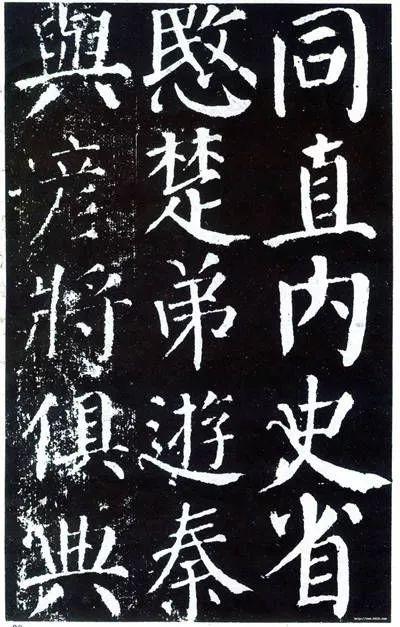 同直内史省
愍楚弟遊秦
與彦將俱典